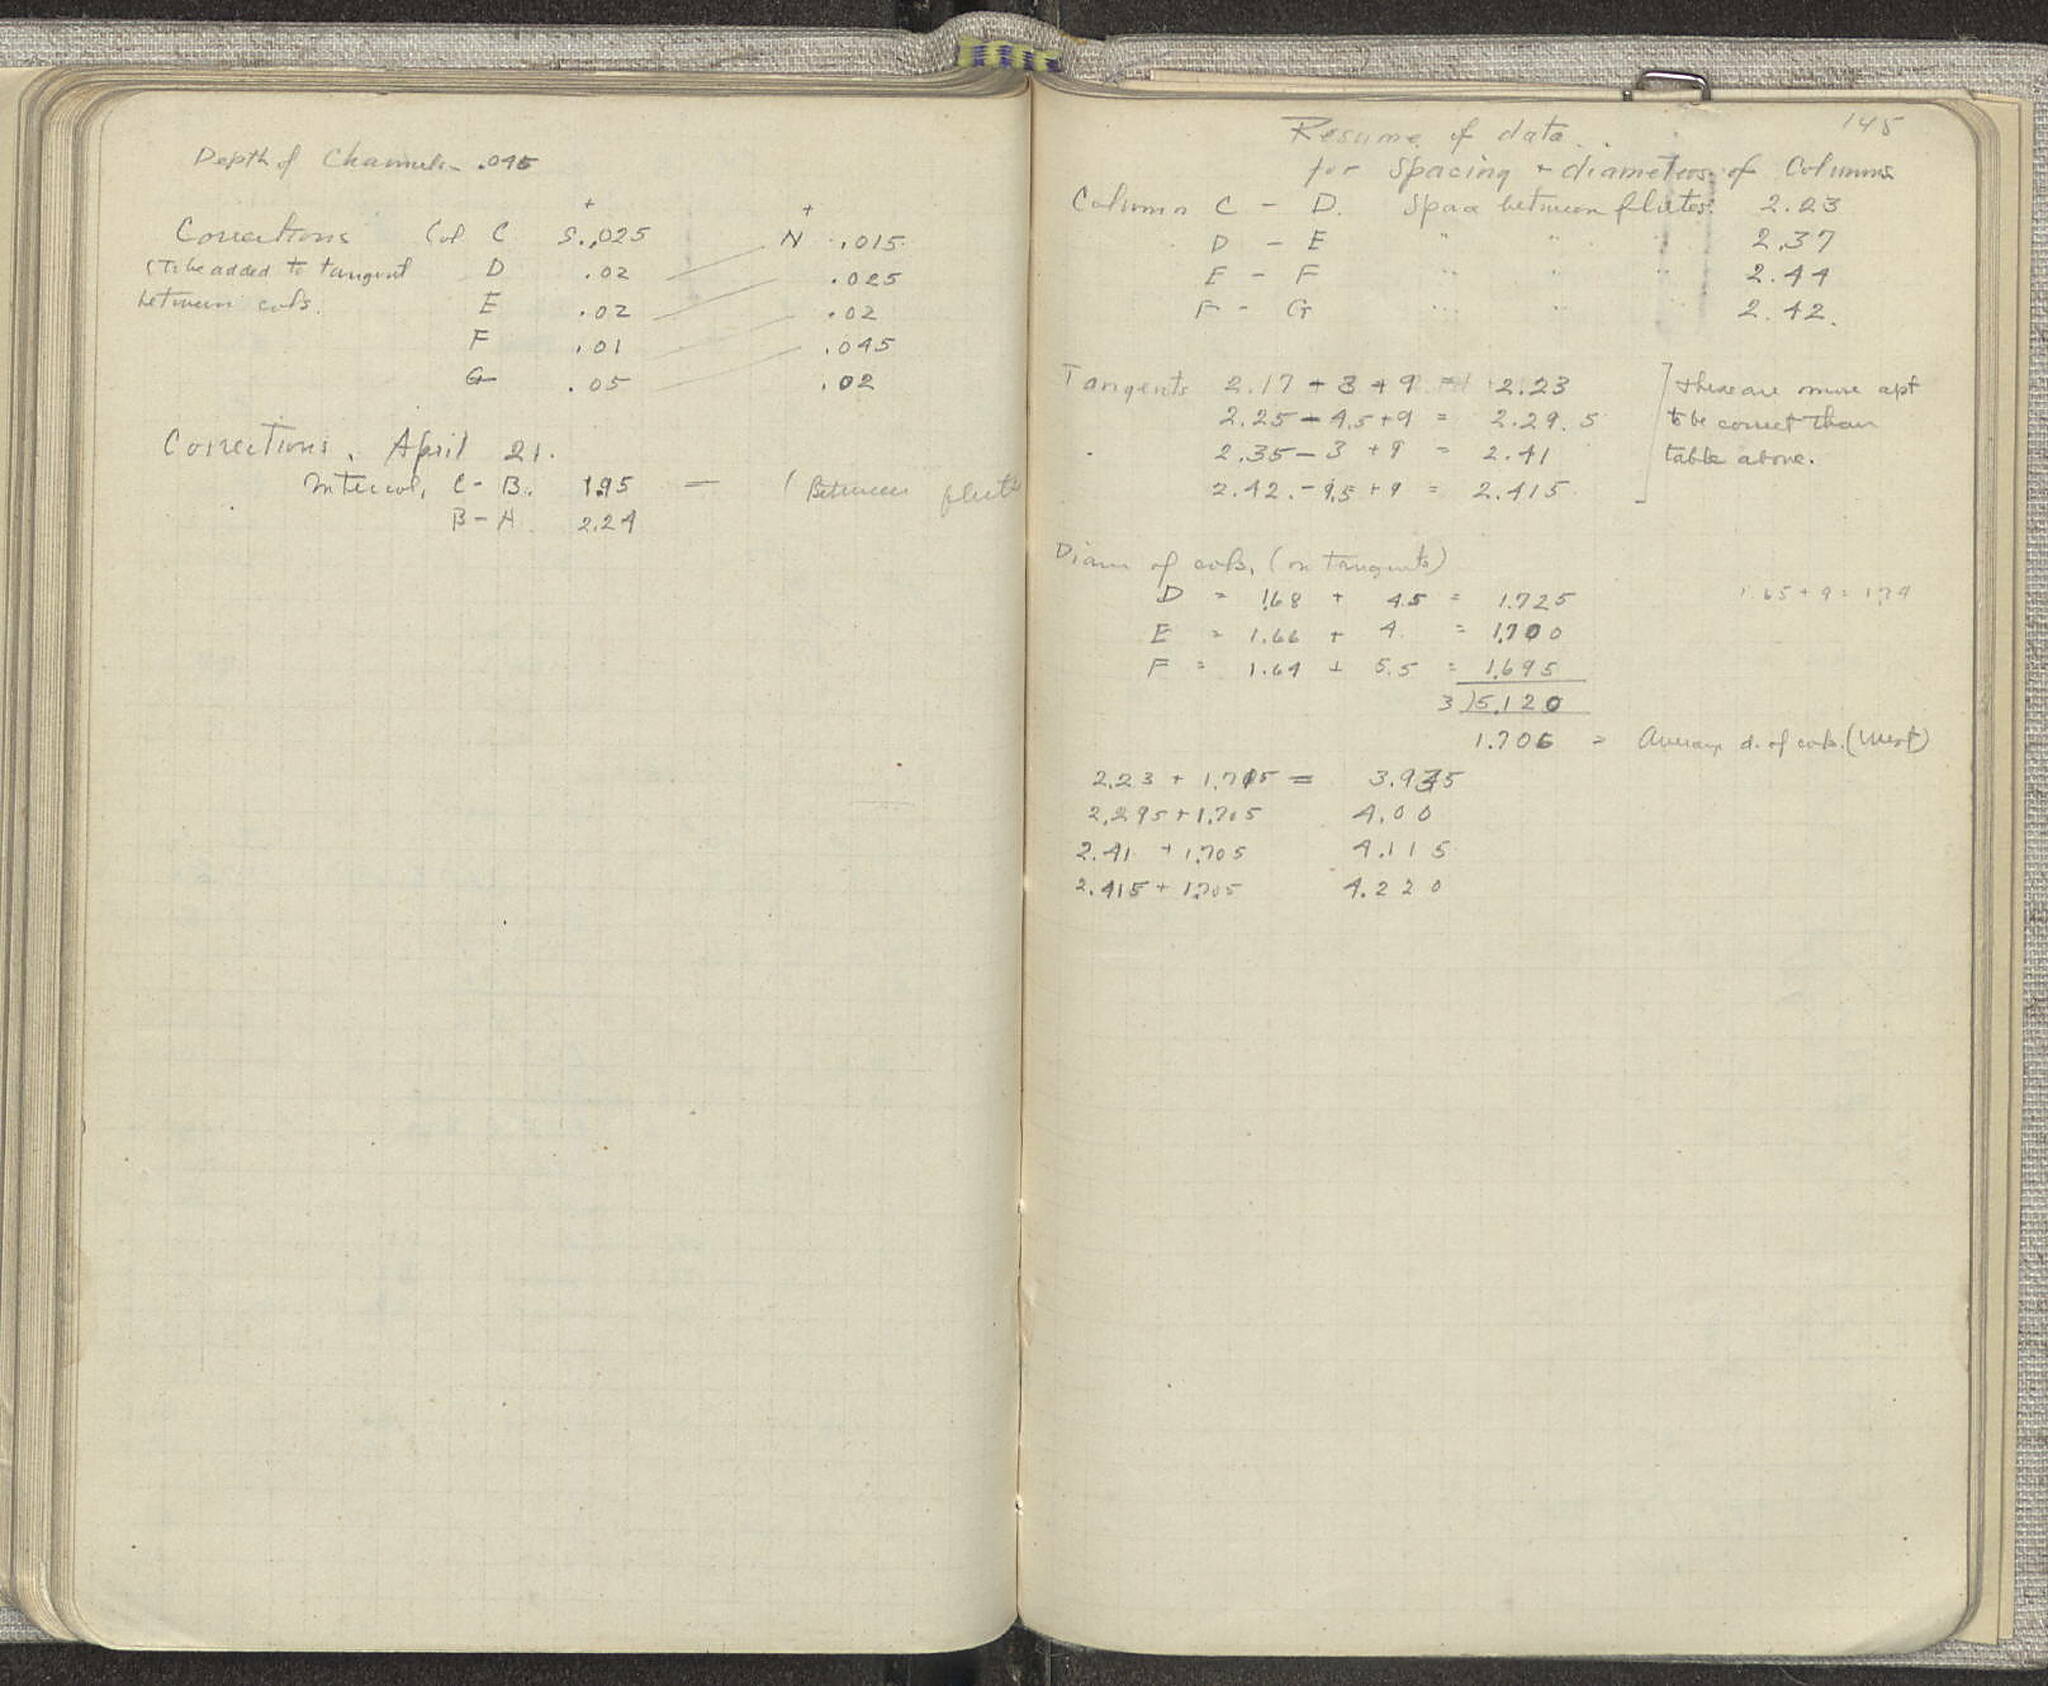 Depth of Channels - .045
+ +
Corrections Col C S. .025 N .015
(To be added to tangent D .02 .025
between cols. E .02 .02
F .01 .045
G .05 .02
Corrections. April 21.
Intercol. C - B. 1.95 — (Between flutes
B - A. 2.24
145
Resume of data
for Spacing + diameters of Columns
Column C - D. Space between flutes. 2.23
D - E " " " 2.37
E - F " " " 2.44
F - G " " " 2.42.
Tangents 2.17 + 3 + 9 = 2.23 these are more apt
2.25 - 4.5 + 9 = 2.29.5 to be correct than
2.35 - 3 + 9 = 2.41 table above.
2.42. - 9.5 + 9 = 2.415
Diam of cols. (on tangents)
D = 1.68 + 4.5 = 1.725 1.65 + 9 = 1.74
E = 1.66 + 4. = 1.700
F = 1.64 + 5.5 = 1.695
3 ) 5.120
1.706 = Average d. of cols. (West)
2.23 + 1.705 = 3.935
2.295 + 1.705 4.00
2.41 + 1.705 4.115
2.415 + 1.705 4.220